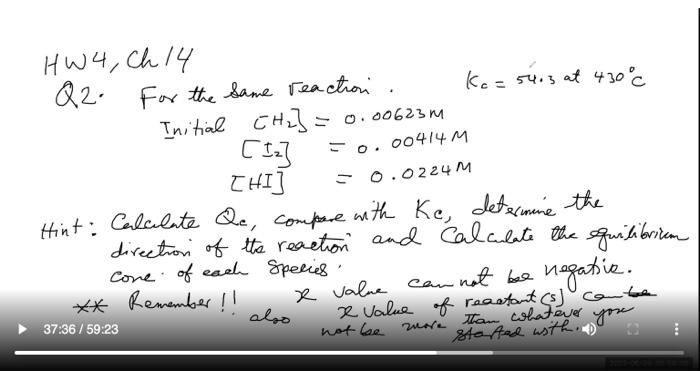 HW4, Ch 14
Q2. For the same reaction. Kc = 54.3 at 430°C
Initial [H2] = 0.00623M
[I2] = 0.00414M
[HI] = 0.0224M
Hint: Calculate Qc, compare with Kc, determine the
direction of the reaction and calculate the equilibrium
conc. of each species.
** Remember!! x value can not be negative.
also x value of reactant(s) can be
not be more than whatever you
started with.
37:36 / 59:23